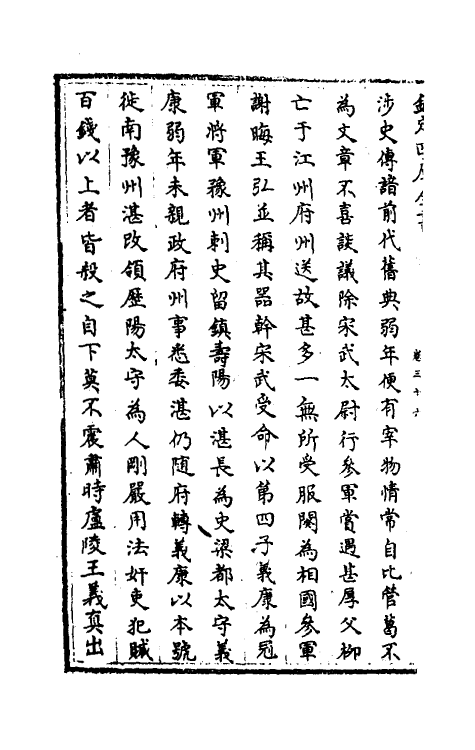 欽定四庫全書
卷三十六
涉史傳諳前代舊典弱年便有宰物情常自比管葛不
為文章不喜談議除宋武太尉行參軍賞遇甚厚父柳
亡于江州府州送故甚多一無所受服闋為相國參軍
謝晦王弘並稱其器幹宋武受命以第四子義康為冠
軍將軍豫州刺史留鎮壽陽以湛長為史梁郡太守義
康弱年未親政府州事悉委湛仍隨府轉義康以本號
徙南豫州湛改領歷陽太守為人剛嚴用法奸吏犯贓
百錢以上者皆殺之自下莫不震肅時廬陵王義真出